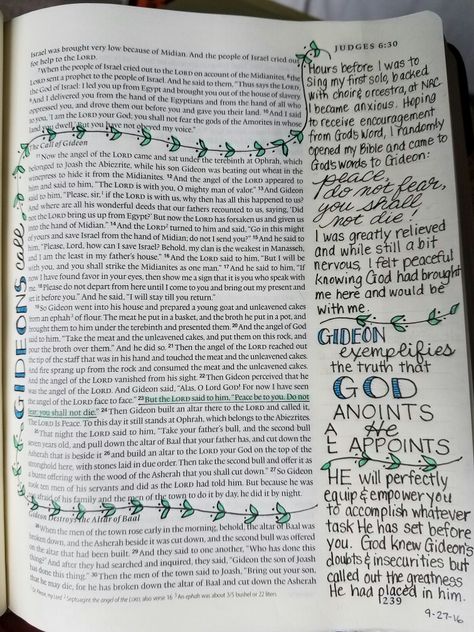 JUDGES 6:30
Israel was brought very low because of Midian. And the people of Israel cried out
for help to the LORD.
7 When the people of Israel cried out to the LORD on account of the Midianites, 8 the
LORD sent a prophet to the people of Israel. And he said to them, "Thus says the LORD,
the God of Israel: I led you up from Egypt and brought you out of the house of slavery.
9 And I delivered you from the hand of the Egyptians and from the hand of all who
oppressed you, and drove them out before you and gave you their land. 10 And I said
to you, 'I am the LORD your God; you shall not fear the gods of the Amorites in whose
land you dwell.' But you have not obeyed my voice."
The Call of Gideon
11 Now the angel of the LORD came and sat under the terebinth at Ophrah, which
belonged to Joash the Abiezrite, while his son Gideon was beating out wheat in the
winepress to hide it from the Midianites. 12 And the angel of the LORD appeared to
him and said to him, "The LORD is with you, O mighty man of valor." 13 And Gideon
said to him, "Please, sir, if the LORD is with us, why then has all this happened to us?
And where are all his wonderful deeds that our fathers recounted to us, saying, 'Did
not the LORD bring us up from Egypt?' But now the LORD has forsaken us and given us
into the hand of Midian." 14 And the LORD turned to him and said, "Go in this might
of yours and save Israel from the hand of Midian; do not I send you?" 15 And he said to
him, "Please, Lord, how can I save Israel? Behold, my clan is the weakest in Manasseh,
and I am the least in my father's house." 16 And the LORD said to him, "But I will be
with you, and you shall strike the Midianites as one man." 17 And he said to him, "If
now I have found favor in your eyes, then show me a sign that it is you who speak with
me. 18 Please do not depart from here until I come to you and bring out my present and
set it before you." And he said, "I will stay till you return."
19 So Gideon went into his house and prepared a young goat and unleavened cakes
from an ephah of flour. The meat he put in a basket, and the broth he put in a pot, and
brought them to him under the terebinth and presented them. 20 And the angel of God
said to him, "Take the meat and the unleavened cakes, and put them on this rock, and
pour the broth over them." And he did so. 21 Then the angel of the LORD reached out
the tip of the staff that was in his hand and touched the meat and the unleavened cakes.
And fire sprang up from the rock and consumed the meat and the unleavened cakes.
And the angel of the LORD vanished from his sight. 22 Then Gideon perceived that he
was the angel of the LORD. And Gideon said, "Alas, O Lord GOD! For now I have seen
the angel of the LORD face to face." 23 But the LORD said to him, "Peace be to you. Do not
fear; you shall not die." 24 Then Gideon built an altar there to the LORD and called it,
The LORD Is Peace. To this day it still stands at Ophrah, which belongs to the Abiezrites.
25 That night the LORD said to him, "Take your father's bull, and the second bull
seven years old, and pull down the altar of Baal that your father has, and cut down the
Asherah that is beside it 26 and build an altar to the LORD your God on the top of the
stronghold here, with stones laid in due order. Then take the second bull and offer it as
a burnt offering with the wood of the Asherah that you shall cut down." 27 So Gideon
took ten men of his servants and did as the LORD had told him. But because he was
too afraid of his family and the men of the town to do it by day, he did it by night.
Gideon Destroys the Altar of Baal
28 When the men of the town rose early in the morning, behold, the altar of Baal was
broken down, and the Asherah beside it was cut down, and the second bull was offered
on the altar that had been built. 29 And they said to one another, "Who has done this
thing?" And after they had searched and inquired, they said, "Gideon the son of Joash
has done this thing." 30 Then the men of the town said to Joash, "Bring out your son,
that he may die, for he has broken down the altar of Baal and cut down the Asherah
Septuagint the angel of the LORD; also verse 16 An ephah was about 3/5 bushel or 22 liters
GIDEONS call
Hours before I was to
sing my first solo, backed
with choir & orcestra, at NAC
I became anxious. Hoping
to receive encouragement
from God's Word, I randomly
opened my Bible and came to
God's words to Gideon:
peace,
do not fear,
you shall
not die!
I was greatly relieved
and while still a bit
nervous, I felt peaceful
knowing God had brought
me here and would be
with me.
GIDEON
exemplifies
the truth that
GOD
ANOINTS
ALL He
APPOINTS
HE will perfectly
equip & empower you
to accomplish whatever
task He has set before
you. God knew Gideon's
doubts & insecurities but
called out the greatness
He had placed in him.
239
9-27-16